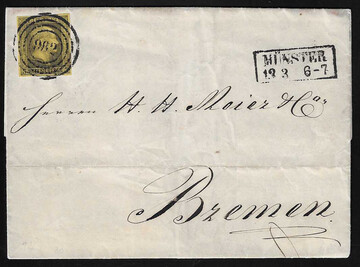 982
MÜNSTER
13 3 6-7
Herren H. H. Meier & Co.
Bremen.